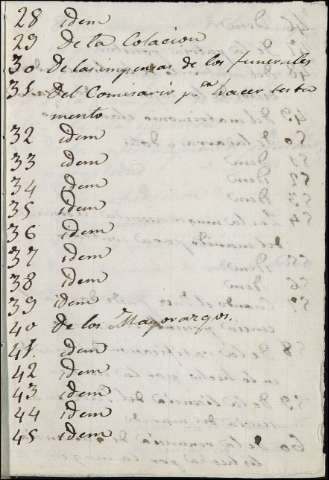 28 idem
29 De la Colacion
30 De las impensas de los funerales
31 Del Comisario pa. hacer testa
mento
32 idem
33 idem
34 idem
35 idem
36 idem
37 idem
38 idem
39 idem
40 de los Mayorazgos.
41. idem
42 idem
43 idem
44 idem
45 idem